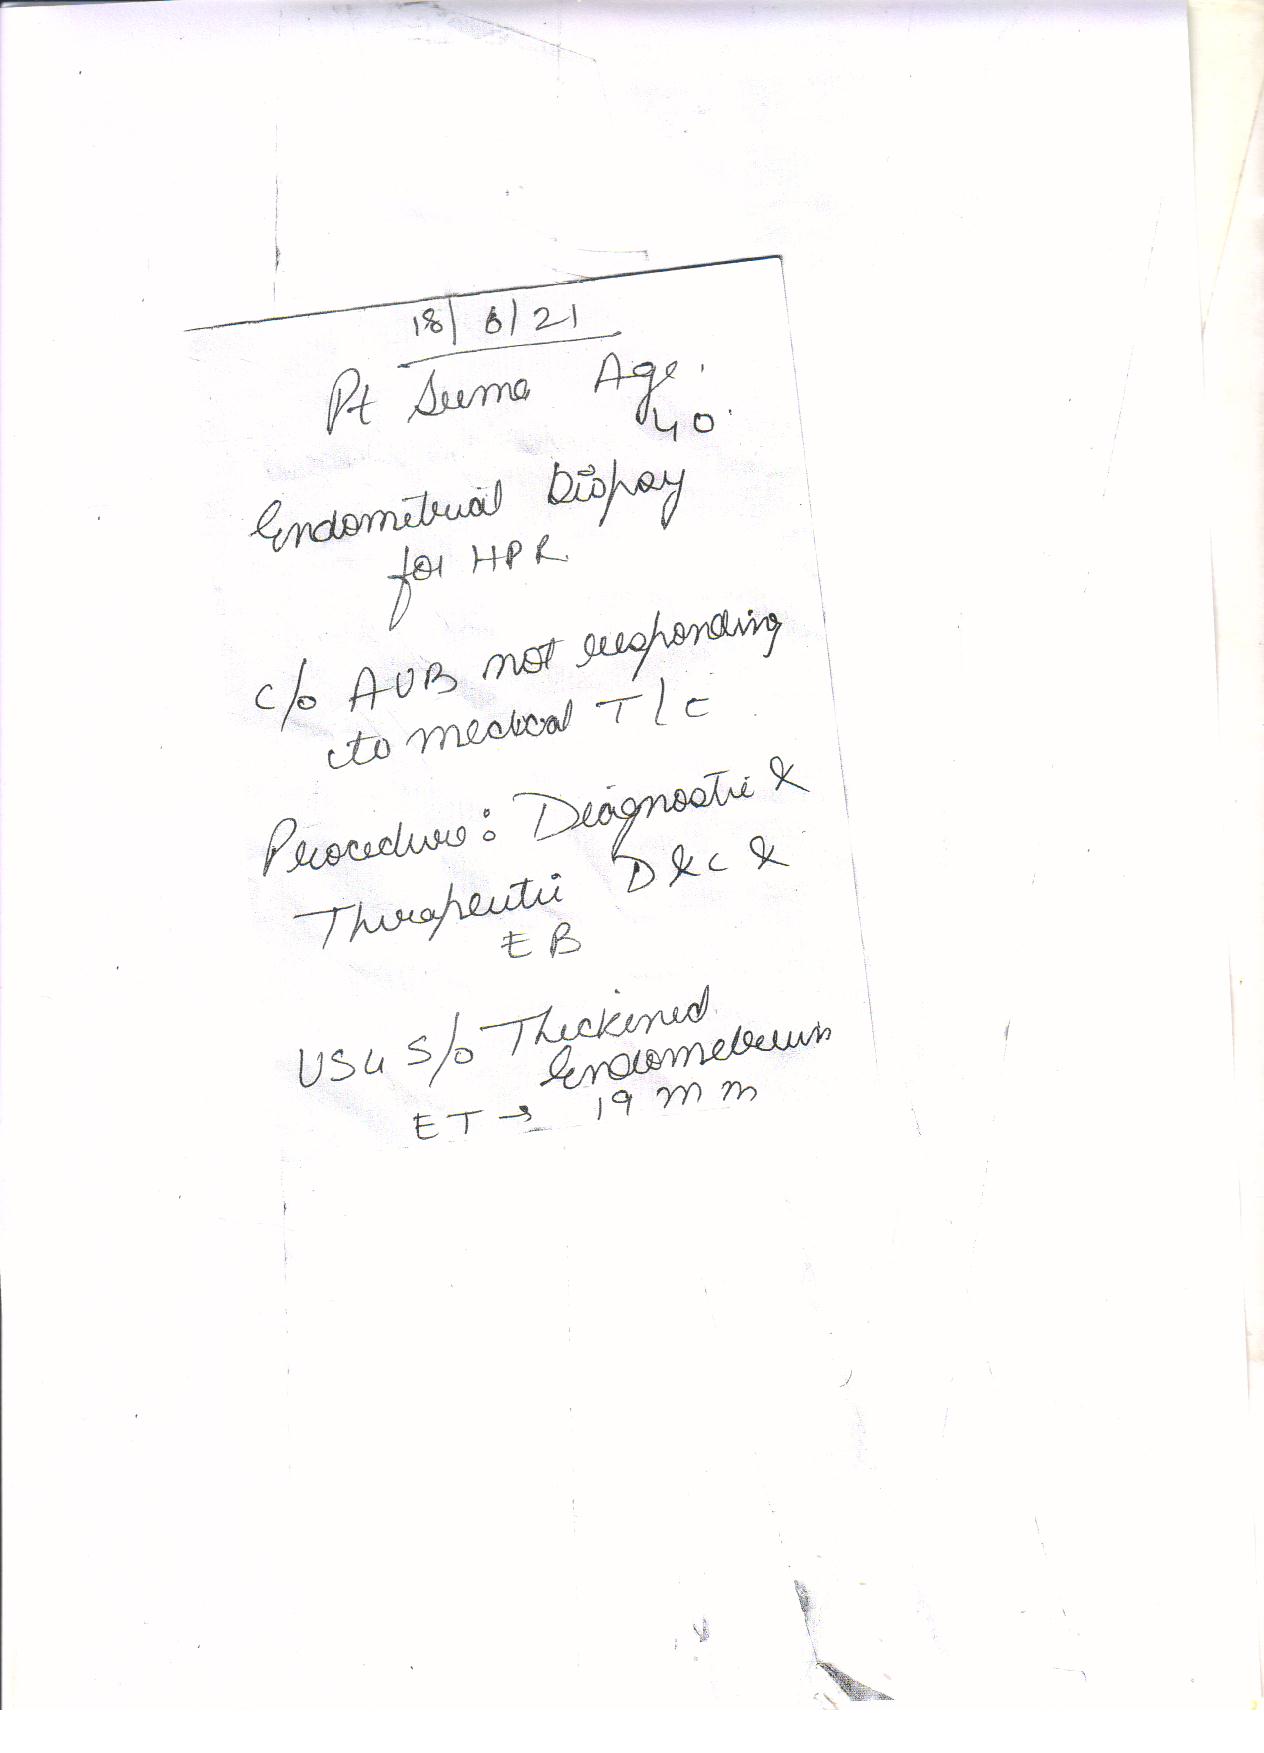 18/6/21
Pt Seema Age.
40.
Endometrial Biopsy
for HPR.
c/o AUB not responding
to medical T/t
Procedure: Diagnostic &
Therapeutic D & C &
EB
USG S/o Thickened
Endometrium
ET → 19 mm